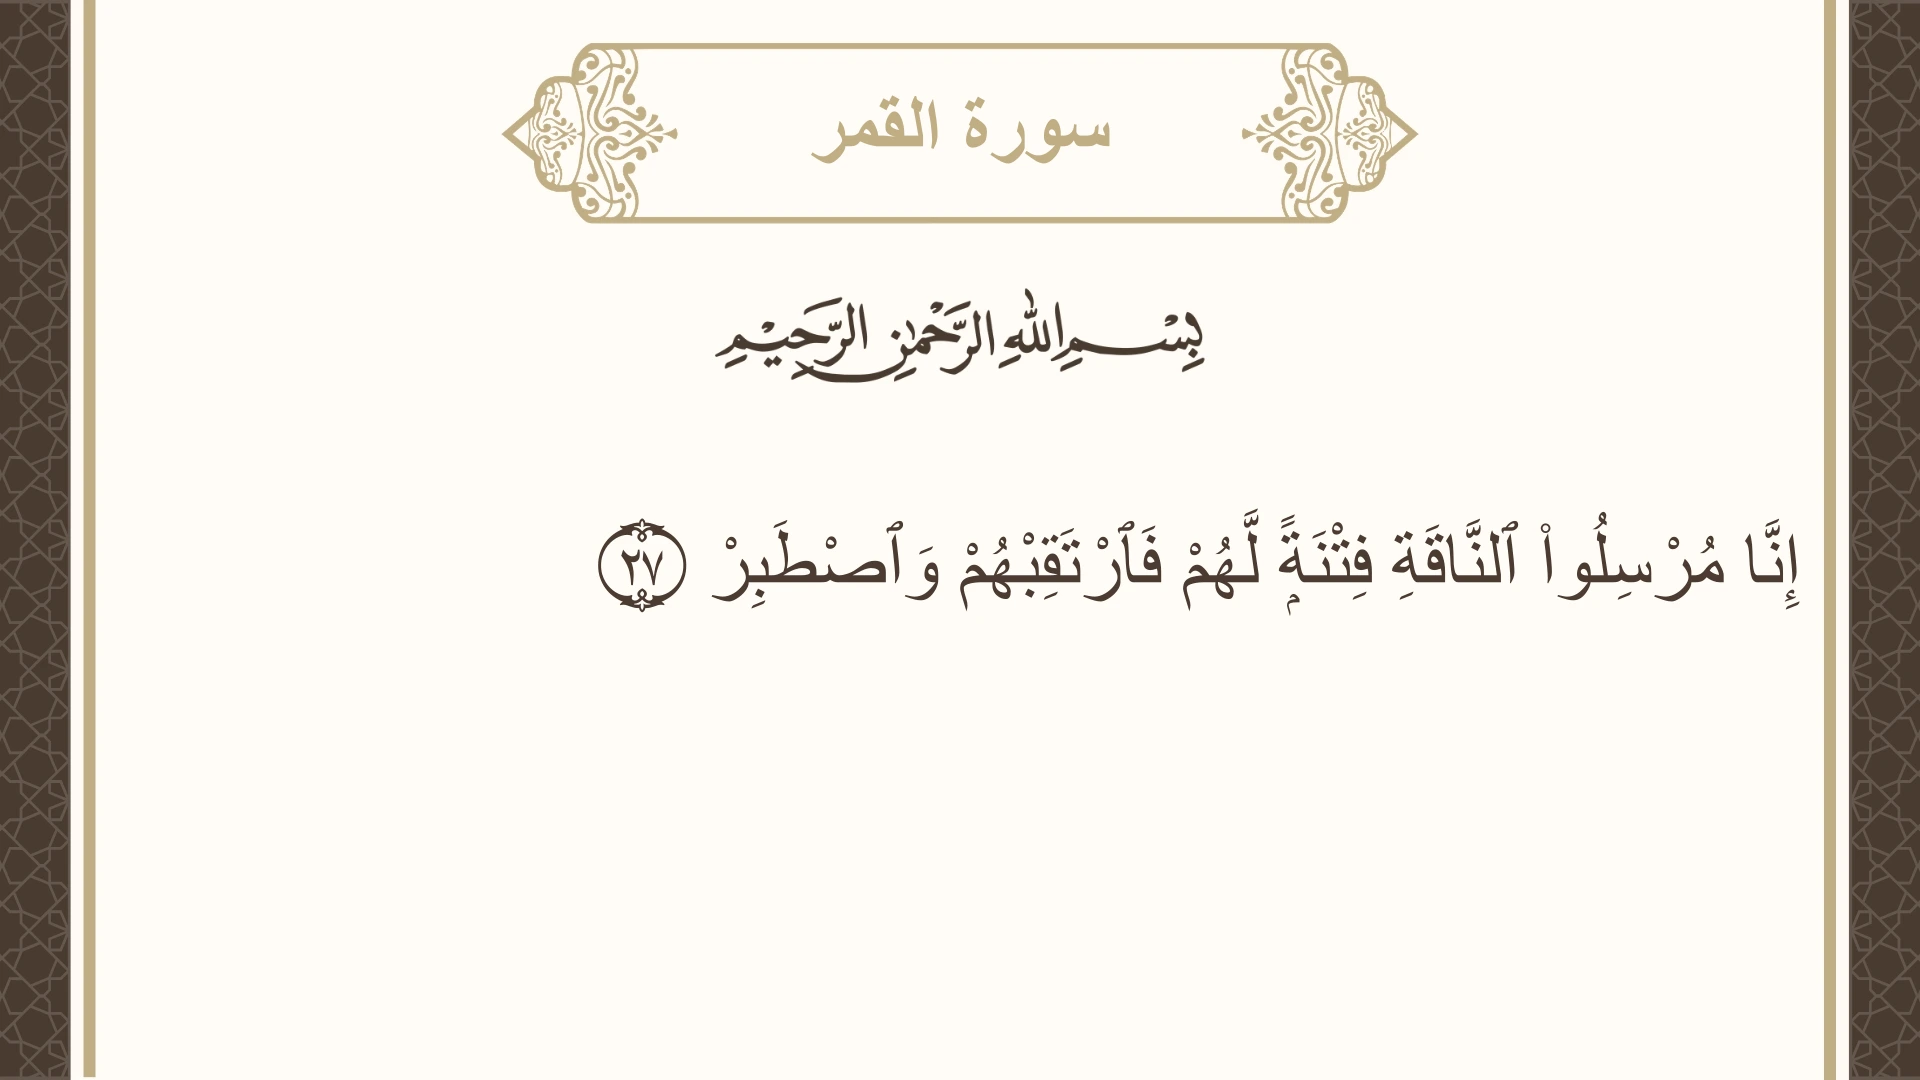 سورة القمر
بِسْمِ اللهِ الرَّحْمٰنِ الرَّحِيْمِ
إِنَّا مُرْسِلُوا۟ ٱلنَّاقَةِ فِتْنَةًۭ لَّهُمْ فَٱرْتَقِبْهُمْ وَٱصْطَبِرْ ٢٧